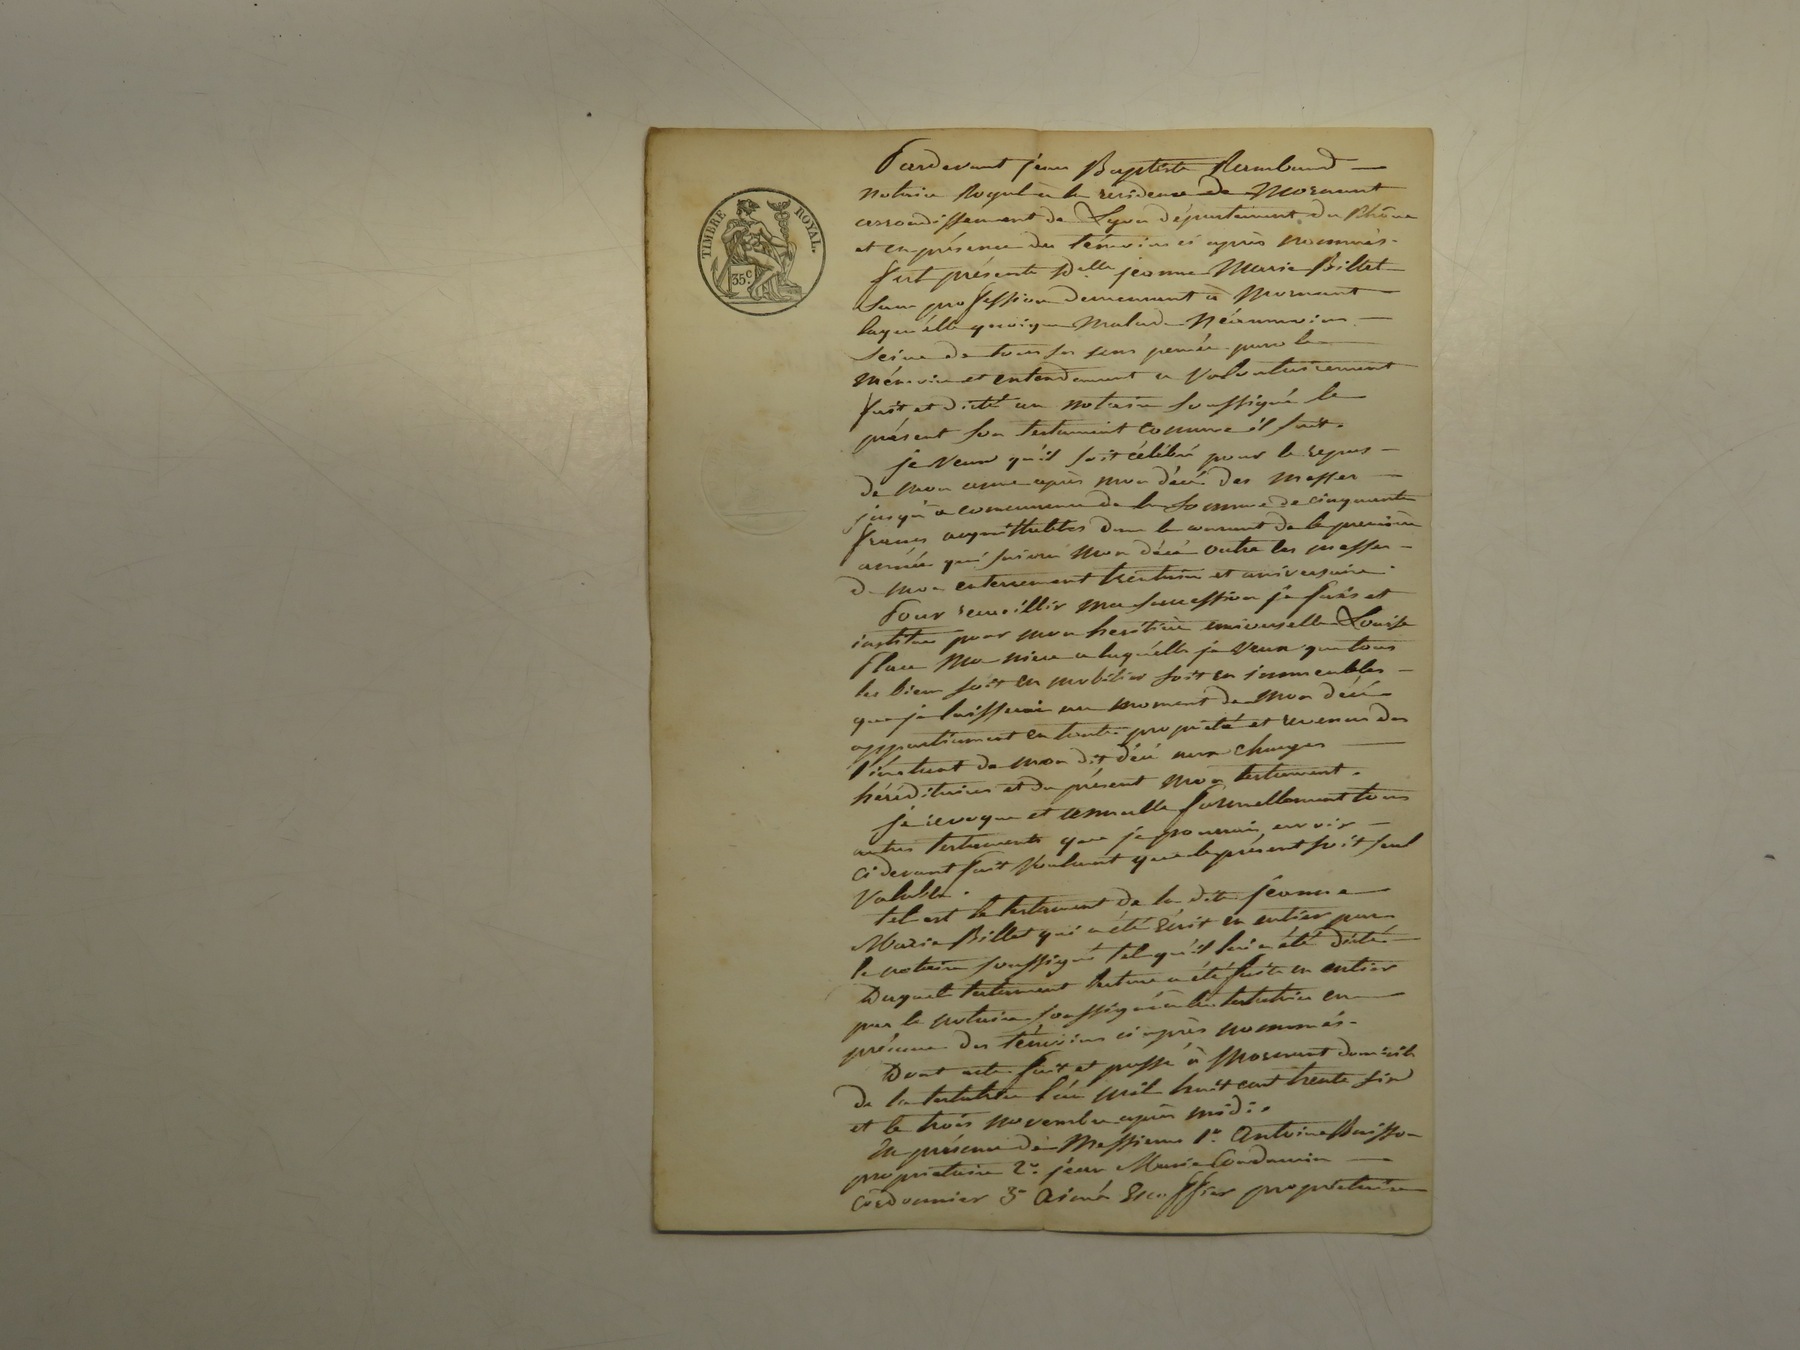 TIMBRE ROYAL.
35 c.
Pardevant jean Baptiste Rambaud
notaire Royal à la résidence de Mornant
arrondissement de Lyon département du Rhône
et en présence des témoins ci après nommés.
fut présente Delle jeanne Marie Billet
sans profession demeurant à Mornant
laquelle quoique malade néanmoins
seine de tous ses sens pensée parole
mémoire et entendement a volontairement
fait et dicté au notaire soussigné le
présent son testament comme il suit.
je veux qu'il soit célébré pour le repos
de mon ame après mon décé des messes
jusqu'a concurrence de la somme de cinquante
francs acquittables dans le courant de la première
année qui suivra mon décé outre les messes
de mon enterrement trentain et aniversaire.
Pour recueillir ma succession je fais et
institue pour mon heritière universelle Louise
Place ma niece a laquelle je veux que tous
les biens soit en mobilier soit en immeubles
que je laisserai au moment de mon décé
appartiennent en toute propriété et revenus des
l'instant de mon dit décé aux charges
héréditaires et du présent mon testament.
je révoque et annulle formellement tous
autres testaments que je pourrais avoir
ci devant fait voulant que le présent soit seul
valable.
tel est le testament de la dite jeanne
Marie Billet qui a été écrit en entier par
le notaire soussigné tel qu'il lui a été dicté
Duquel testament lecture a été faite en entier
par le notaire soussigné à la testatrice en
présence des témoins ci après nommés.
Dont acte fait et passé à Mornant domicile
de la testatrice l'an mil huit cent trente six
et le trois novembre après midi.
En présence de Messieurs 1° Antoine Buisson
propriétaire 2° jean Marie Condamin
cordonnier 3° Aimé Escoffier propriétaire